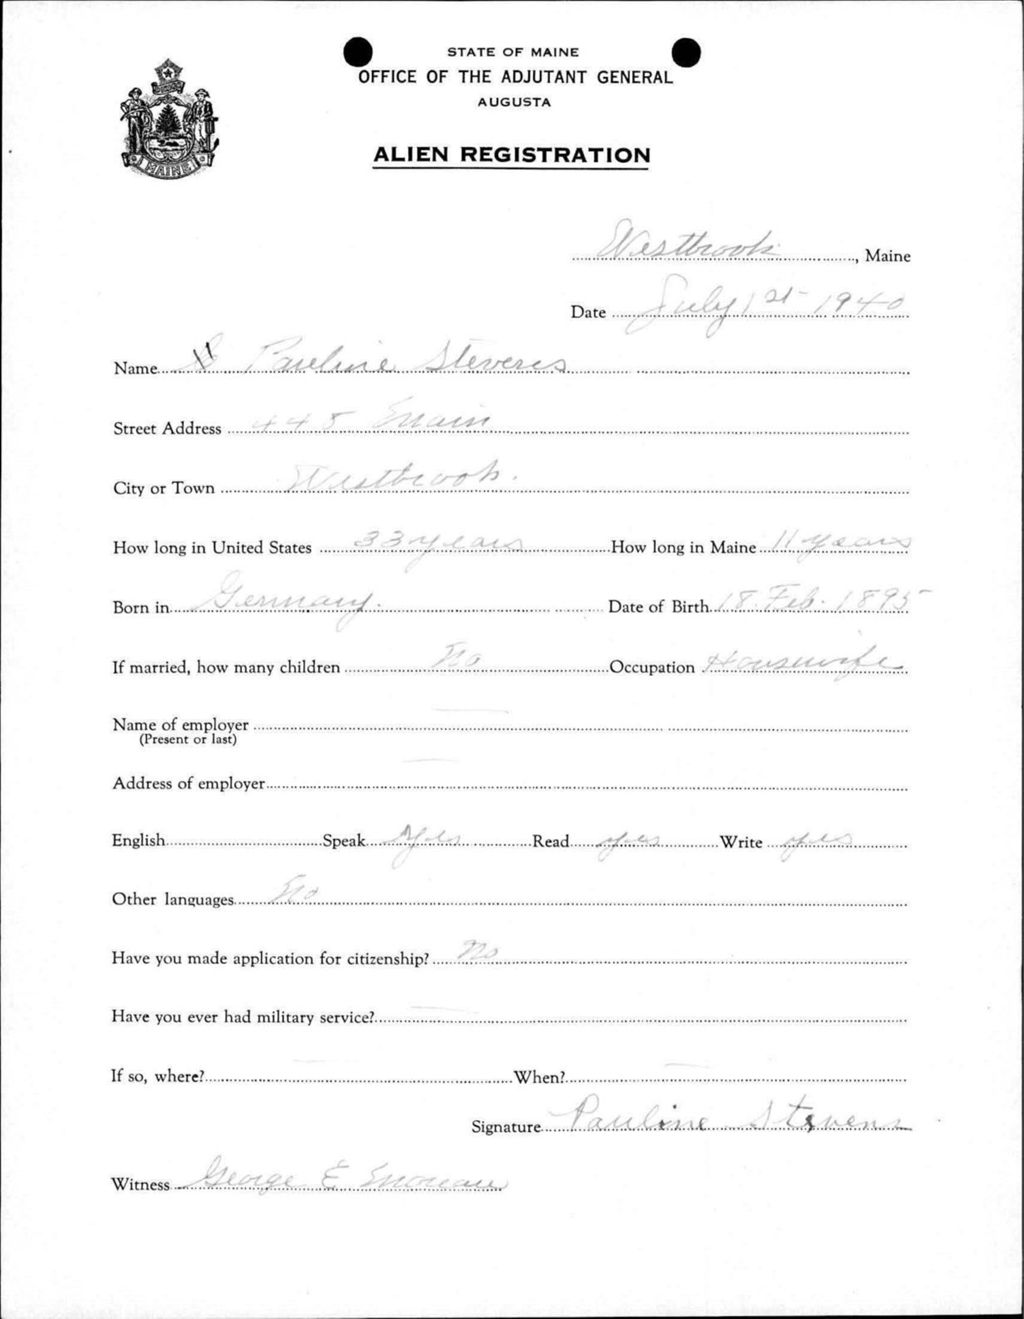 STATE OF MAINE
OFFICE OF THE ADJUTANT GENERAL
AUGUSTA
ALIEN REGISTRATION
MAINE
Westbrook, Maine
Date July 1st 1940
Name Pauline Stevens
Street Address 445 Main
City or Town Westbrook.
How long in United States 33 years How long in Maine 11 years
Born in Germany. Date of Birth 18 Feb. 1895
If married, how many children No Occupation Housewife
Name of employer —
(Present or last)
Address of employer —
English Speak Yes Read yes Write yes
Other languages No
Have you made application for citizenship? No
Have you ever had military service? —
If so, where? — When? —
Signature Pauline Stevens
Witness George E Moreau